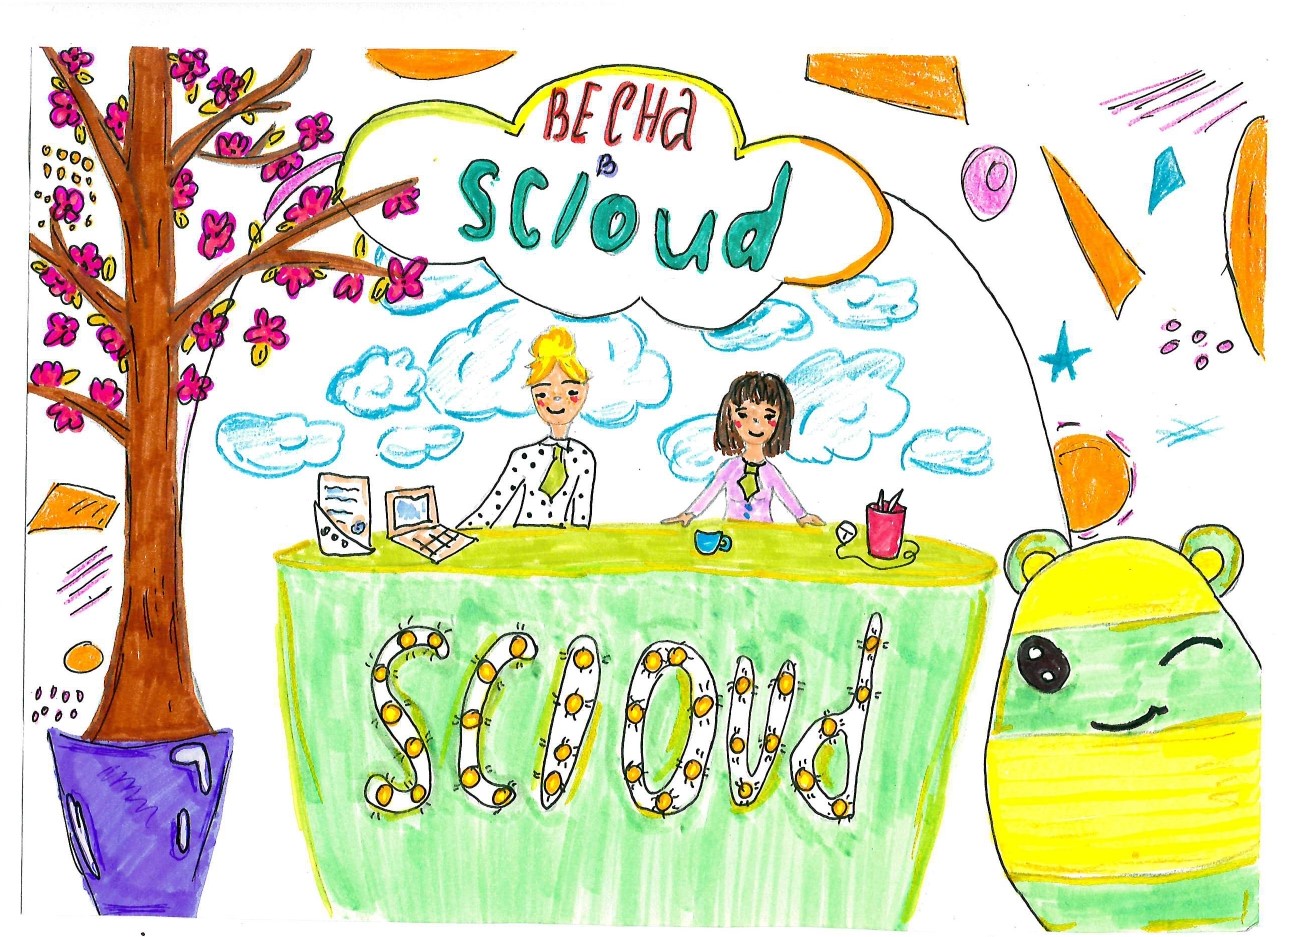 ВЕСНа
в
scloud
scloud